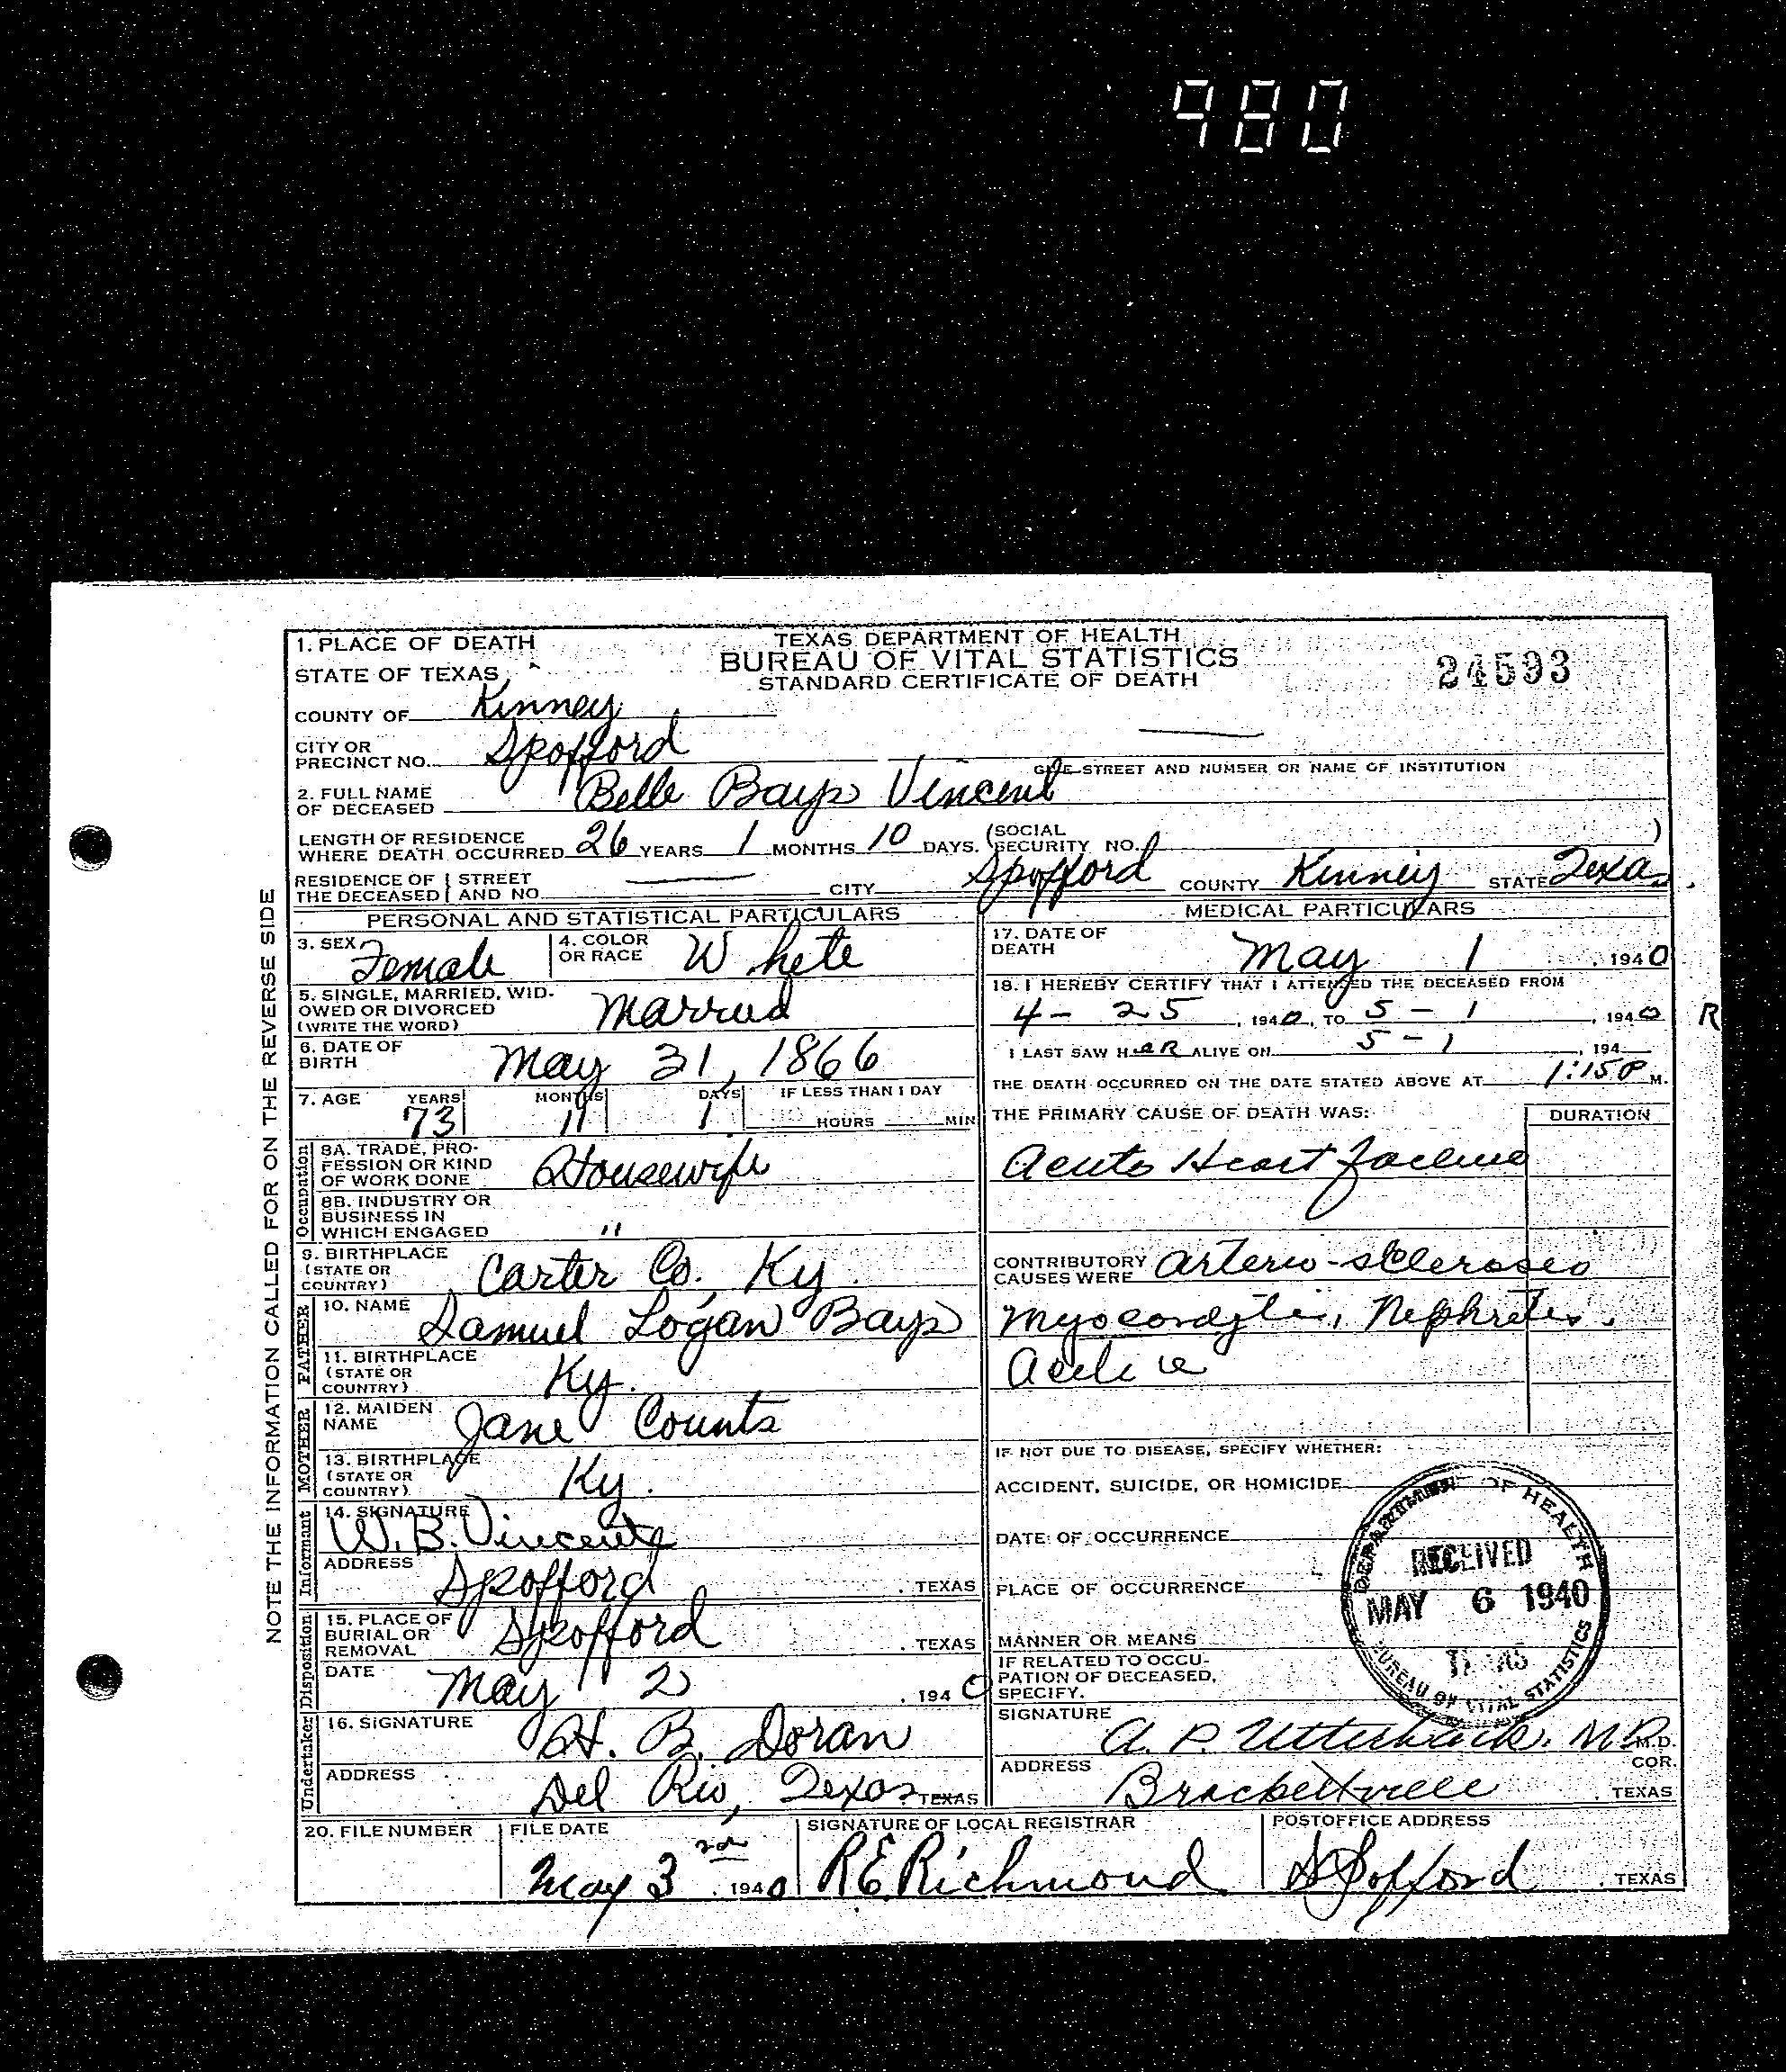 980
1. PLACE OF DEATH
TEXAS DEPARTMENT OF HEALTH
BUREAU OF VITAL STATISTICS
STANDARD CERTIFICATE OF DEATH
24593
STATE OF TEXAS
COUNTY OF Kinney
CITY OR PRECINCT NO. Spofford
GIVE STREET AND NUMBER OR NAME OF INSTITUTION
2. FULL NAME OF DECEASED Belle Bays Vincent
LENGTH OF RESIDENCE WHERE DEATH OCCURRED 26 YEARS 1 MONTHS 10 DAYS. (SOCIAL SECURITY NO. )
RESIDENCE OF THE DECEASED STREET AND NO. CITY Spofford COUNTY Kinney STATE Texas
PERSONAL AND STATISTICAL PARTICULARS
3. SEX Female 4. COLOR OR RACE White
5. SINGLE, MARRIED, WIDOWED OR DIVORCED (WRITE THE WORD) Married
6. DATE OF BIRTH May 31, 1866
7. AGE YEARS 73 MONTHS 11 DAYS 1 IF LESS THAN 1 DAY HOURS MIN
Occupation
8A. TRADE, PROFESSION OR KIND OF WORK DONE Housewife
8B. INDUSTRY OR BUSINESS IN WHICH ENGAGED "
9. BIRTHPLACE (STATE OR COUNTRY) Carter Co., Ky.
FATHER
10. NAME Samuel Logan Bays
11. BIRTHPLACE (STATE OR COUNTRY) Ky.
MOTHER
12. MAIDEN NAME Jane Counts
13. BIRTHPLACE (STATE OR COUNTRY) Ky.
Informant
14. SIGNATURE W. B. Vincent
ADDRESS Spofford, TEXAS
Disposition
15. PLACE OF BURIAL OR REMOVAL Spofford, TEXAS
DATE May 2, 1940
Undertaker
16. SIGNATURE H. B. Doran
ADDRESS Del Rio, Texas TEXAS
MEDICAL PARTICULARS
17. DATE OF DEATH May 1, 1940
18. I HEREBY CERTIFY THAT I ATTENDED THE DECEASED FROM
4-25, 1940, TO 5-1, 1940 R
I LAST SAW HER ALIVE ON 5-1, 194
THE DEATH OCCURRED ON THE DATE STATED ABOVE AT 1:15 P M.
THE PRIMARY CAUSE OF DEATH WAS: DURATION
Acute Heart failure
CONTRIBUTORY CAUSES WERE Arterio-sclerosis
Myocarditis, Nephritis,
IF NOT DUE TO DISEASE, SPECIFY WHETHER:
ACCIDENT, SUICIDE, OR HOMICIDE
DATE OF OCCURRENCE
PLACE OF OCCURRENCE
MANNER OR MEANS
IF RELATED TO OCCUPATION OF DECEASED, SPECIFY.
SIGNATURE A. P. Utterback. MD M.D.
COR.
ADDRESS Brackettville, TEXAS
DEPARTMENT OF HEALTH
RECEIVED
MAY 6 1940
TEXAS
BUREAU OF VITAL STATISTICS
20. FILE NUMBER
FILE DATE May 3, 1940
SIGNATURE OF LOCAL REGISTRAR R E Richmond
POSTOFFICE ADDRESS Spofford, TEXAS
NOTE THE INFORMATION CALLED FOR ON THE REVERSE SIDE